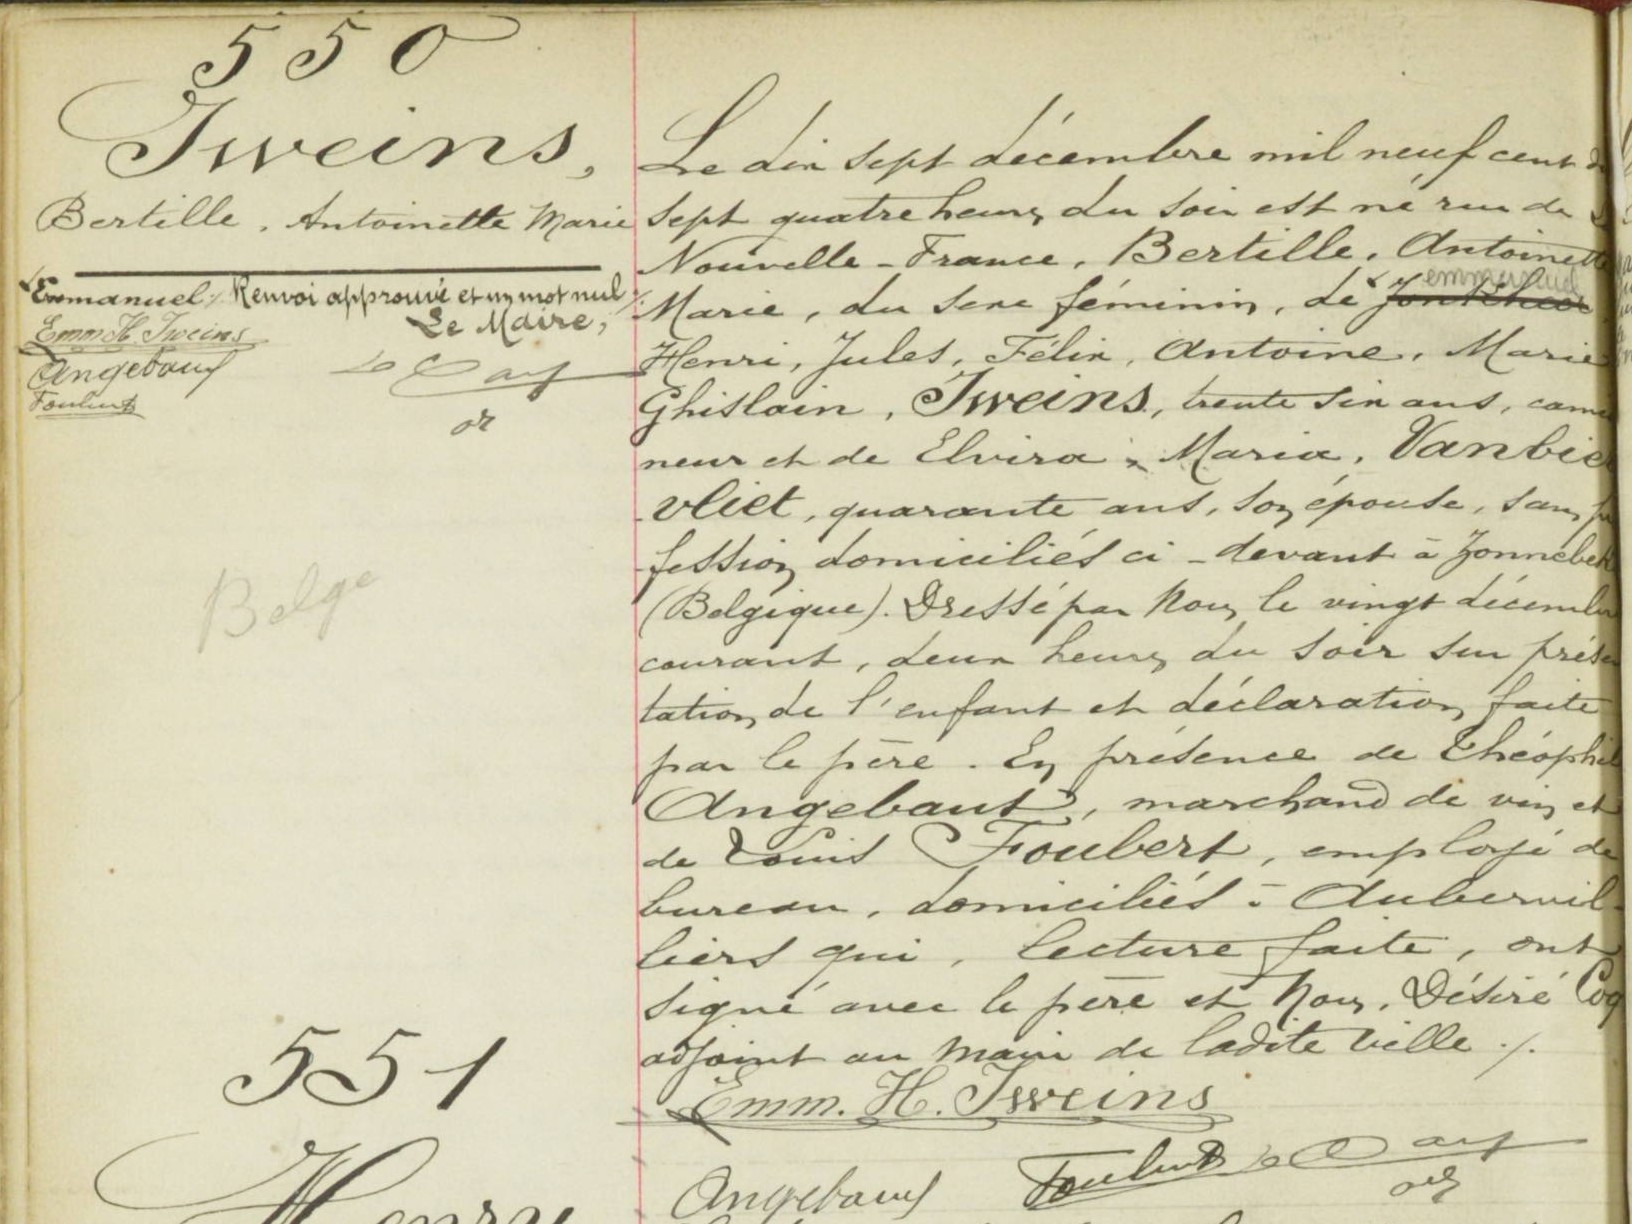 550
Iweins,
Bertille, Antoinette Marie
Emmanuel ./. Renvoi approuvé et un mot nul ./.
Le Maire,
Emm H Iweins
Angebaud
Foubert
Belge
Le dix sept décembre mil neuf cent
sept quatre heures du soir est né rue de
Nouvelle-France, Bertille, Antoinette
Marie, du sexe féminin, de emmanuel
Henri, Jules, Félix, Antoine, Marie
Ghislain, Iweins, trente six ans, cami
neur et de Elvira, Maria, Vanbier
vliet, quarante ans, son épouse, sans pr
fession domiciliés ci-devant à Zonnebek
(Belgique). Dressé par Nous le vingt décembre
courant, deux heures du soir sur présen
tation de l'enfant et déclaration faite
par le père. En présence de Théophile
Angebaut, marchand de vin et
de Louis Foubert, employé de
bureau, domiciliés à Aubervil-
liers qui, lecture faite, ont
signé avec le père et Nous, Désiré Coq
adjoint au maire de ladite ville ./.
Emm. H. Iweins
Angebaud Foubert
551
Henry